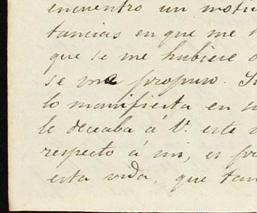 encuentro un motiv
tancias en que me h
que se me hubiese o
se me propuso. Si
lo manifiesta en su
le deceaba á V. este
respecto á mi, es pre
esta vida, que tan